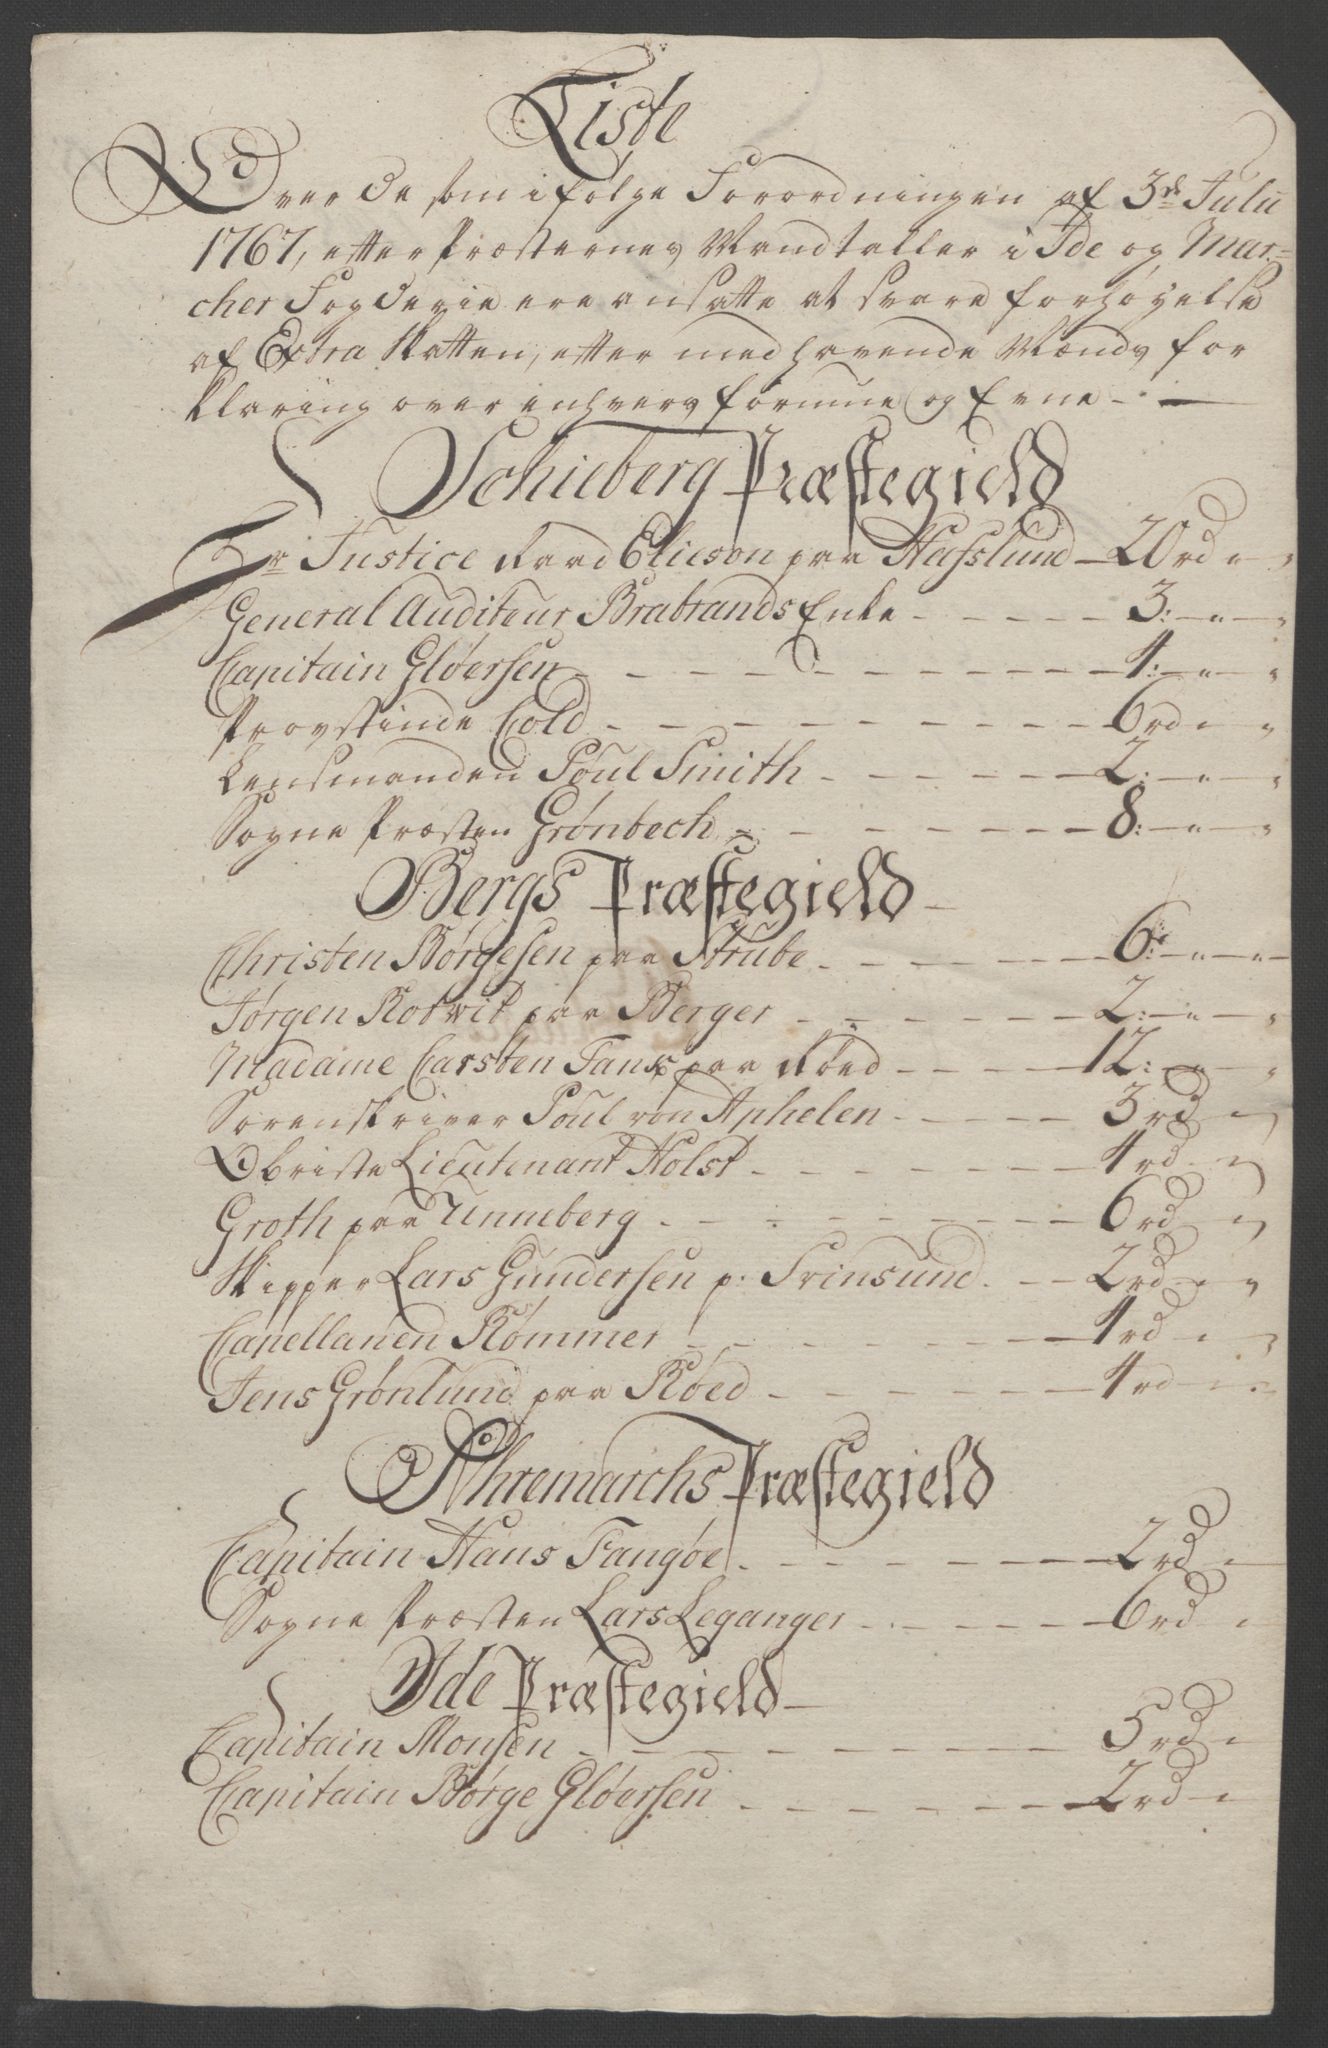 Liste
Over de som i følge Forordningen af 3de Julii
1767, efter Præsternes Mandtaller i Ide og Mar=
cher Fogderie ere ansatte at svare forhøyelse
af Extra Skatten, efter medhavende Mænds for
klaring over enhvers formue og Evne
Schieberg Præstegield
Hr Justice Raad Elieson paa Hafslund 20 rd " "
General Auditeur Brabrands Enke 3: " "
Capitain Gløersen 1: " "
Provstinde Cold 6 rd " "
Lensmanden Poul Smith 2: " "
Sogne Præsten Grønbech 8: " "
Bergs Præstegield
Christen Børgesen paa Strube 6: " "
Jørgen Rotwit paa Berger 2: " "
Madame Carsten Tanx paa Røed 12: " "
Sorenskriver Poul von Aphelen 3 rd "
Obriste Lieutenant Holst 1 rd "
Groth paa Unneberg 6 rd "
Skipper Lars Gundersen p: Svinsund 2 rd " "
Capellanen Rømmer 1 rd " "
Jens Grønlund paa Røed 1 rd " "
Ahremarchs Præstegield
Capitain Hans Tangøe 2 rd "
Sogne Præsten Lars Leganger 6 rd "
Ide Præstegield
Capitain Monsen 5 rd "
Capitain Børge Gløersen 2 rd "